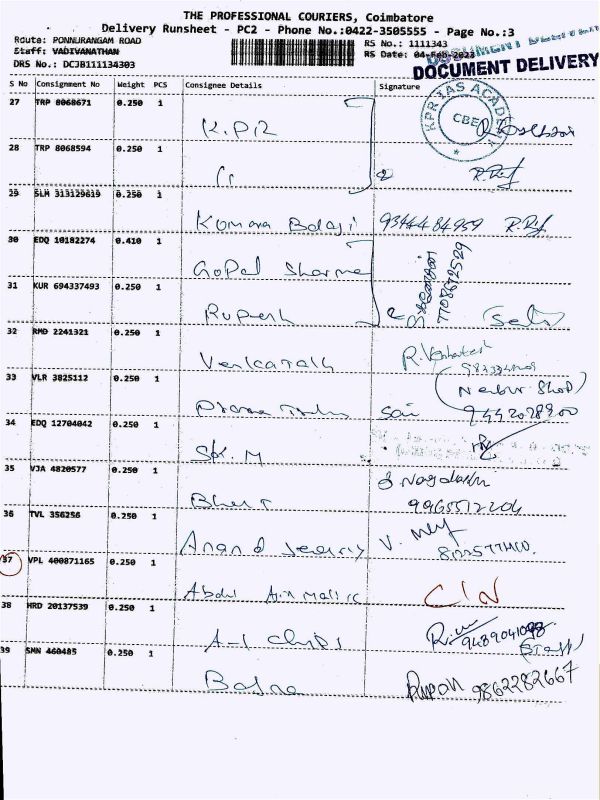 THE PROFESSIONAL COURIERS, Coimbatore
Delivery Runsheet - PC2 - Phone No.:0422-3505555 - Page No.:3
Route: PONNURANGAM ROAD
RS No.: 1111343
Staff: VADIVANATHAN
RS Date: 04-Feb-2023
DRS No.: DCJB111134303
DOCUMENT DELIVERY
S No Consignment No Weight PCS Consignee Details Signature
KPR IAS ACADEMY
CBE
27 TRP 8068671 0.250 1
K.P.R
28 TRP 8068594 0.250 1
29 SLM 313129819 0.250 1
Komara Balaji 9344484959
30 EDQ 10182274 0.410 1
Gopal Sharma 7708672529
31 KUR 694337493 0.250 1
Rupesh (Self)
32 RMD 2241321 0.250 1
Venkatash R. Venkatesh
33 VLR 3825112 0.250 1
Sai 9442028900
34 EDQ 12704042 0.250 1
SK. M
35 VJA 4820577 0.250 1
9965512204
36 TVL 356256 0.250 1
Anand V.
37 VPL 400871165 0.250 1
Abdul C/N
38 HRD 20137539 0.250 1
A-1 Chips 9489041098
(Staff)
39 SMN 460485 0.250 1
9862282667